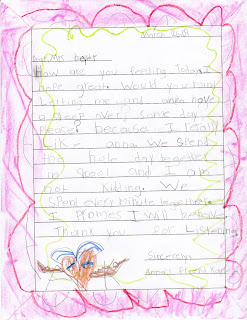 March
Dear Mrs.
How are you feeling today I
hope great. Would you mind
letting me and anna have
a sleep over some day
please. because I really
like anna. We spend
the hole day together
in scool and I am
not kidding. We
spend every minute together
I promes I will behave
Thank you for Listening
Sincerely,
Anna's friend